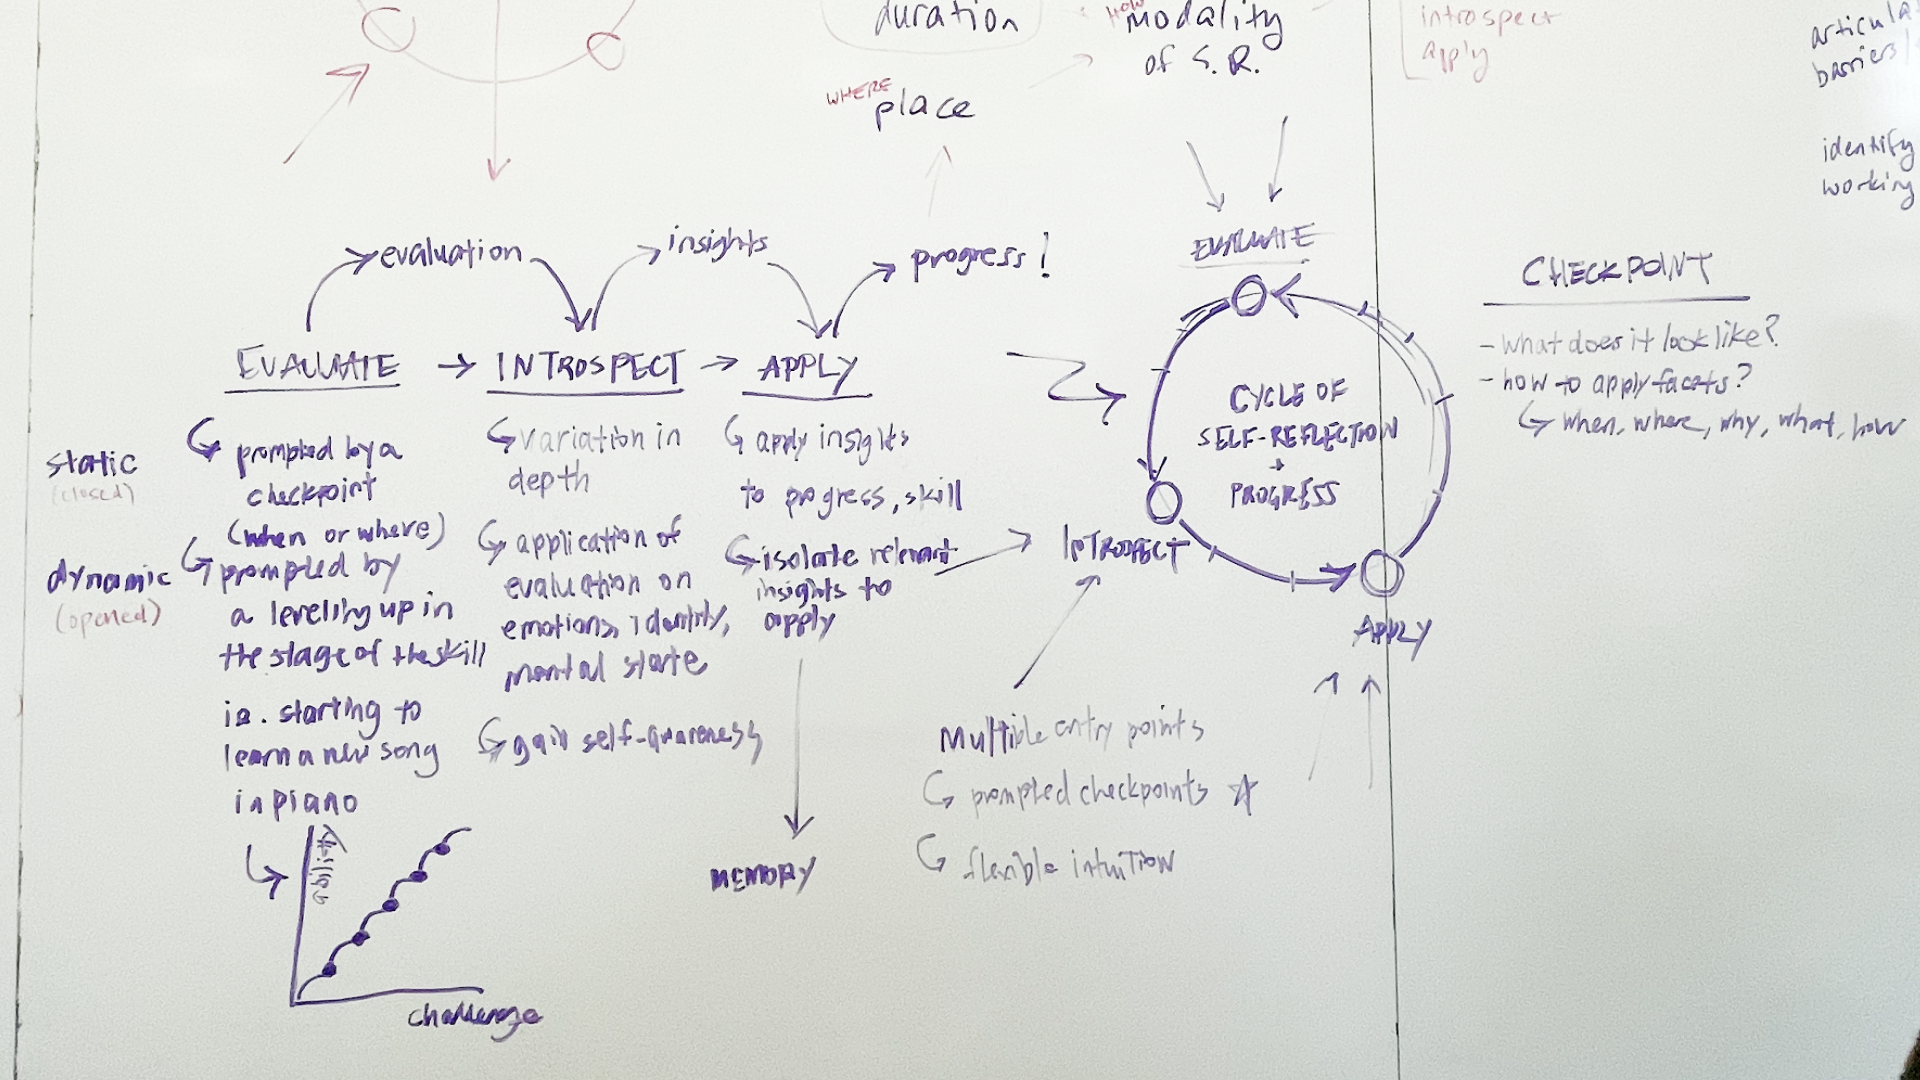 duration
HOW
modality
of S.R.
introspect
apply
barriers
WHERE
place
identify
working
evaluation
insights
progress!
EVALUATE → INTROSPECT → APPLY
static
(closed)
↪ prompted by a
checkpoint
(when or where)
dynamic
(opened)
↪ prompted by
a leveling up in
the stage of the skill
ie. starting to
learn a new song
in piano
ability
challenge
↪ variation in
depth
↪ application of
evaluation on
emotions, identity,
mental state
↪ gain self-awareness
↪ apply insights
to progress, skill
↪ isolate relevant
insights to
apply
MEMORY
EVALUATE
CYCLE OF
SELF-REFLECTION
→
PROGRESS
INTROSPECT
APPLY
Multiple entry points
↪ prompted checkpoints ☆
↪ flexible intuition
CHECKPOINT
- what does it look like?
- how to apply facets?
↪ when, where, why, what, how